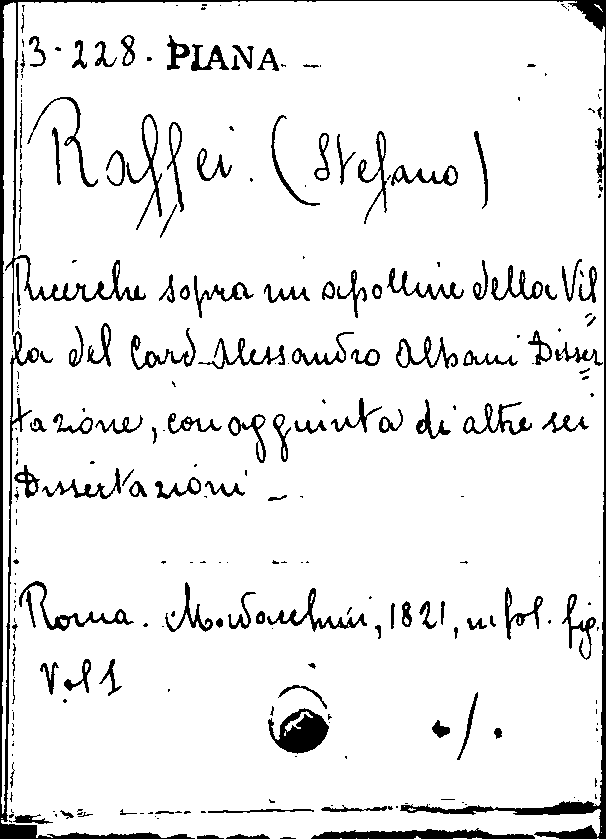 3·228. PIANA
Raffei. (Stefano)
Ricerche sopra un apolline della Vil
la del Card Alessandro Albani Disser
tazione, con aggiunta di altre sei
Dissertazioni
Roma. Mordacchini, 1821, in fol. fig.
Vol 1
./.